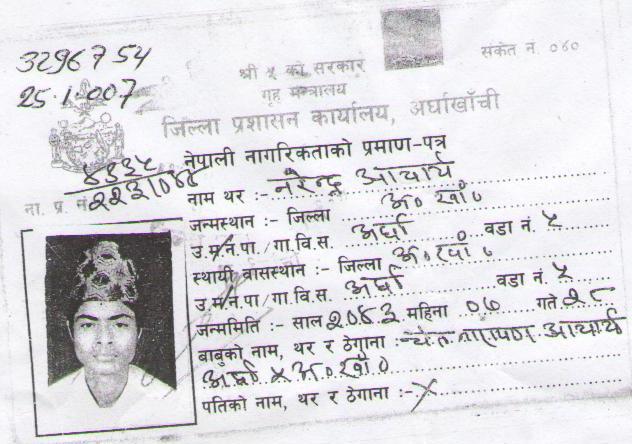 3296754
25.1.007
संकेत नं. ०४०
श्री ५ को सरकार
गृह मन्त्रालय
जिल्ला प्रशासन कार्यालय, अर्घाखाँची
नेपाली नागरिकताको प्रमाण-पत्र
ना. प्र. नं.
नाम थर :- नरेन्द्र आचार्य
जन्मस्थान :- जिल्ला अ० खाँ०
उ.म/न.पा./गा.वि.स. अर्घा वडा नं. ५
स्थायी वासस्थान :- जिल्ला अ० खाँ०
उ.म/न.पा/गा.वि.स. अर्घा वडा नं. ५
जन्ममिति :- साल २०४३ महिना ०७ गते २८
बाबुको नाम, थर र ठेगाना :- नारायण आचार्य
अर्घा ५ अ० खाँ०
पतिको नाम, थर र ठेगाना :- ×